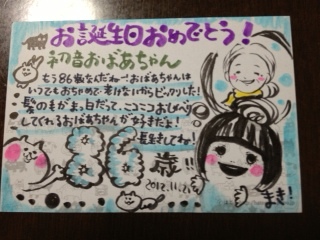 お誕生日おめでとう!
初音おばあちゃん
もう86歳なんだねー おばあちゃんは
いつもおちゃめで 若いからビックリした!
髪の毛がまっ白だって、ニコニコおしゃべり
してくれるおばあちゃんが好きだよ!
長生きしてね!
86歳!!
2012.11.21
まき!